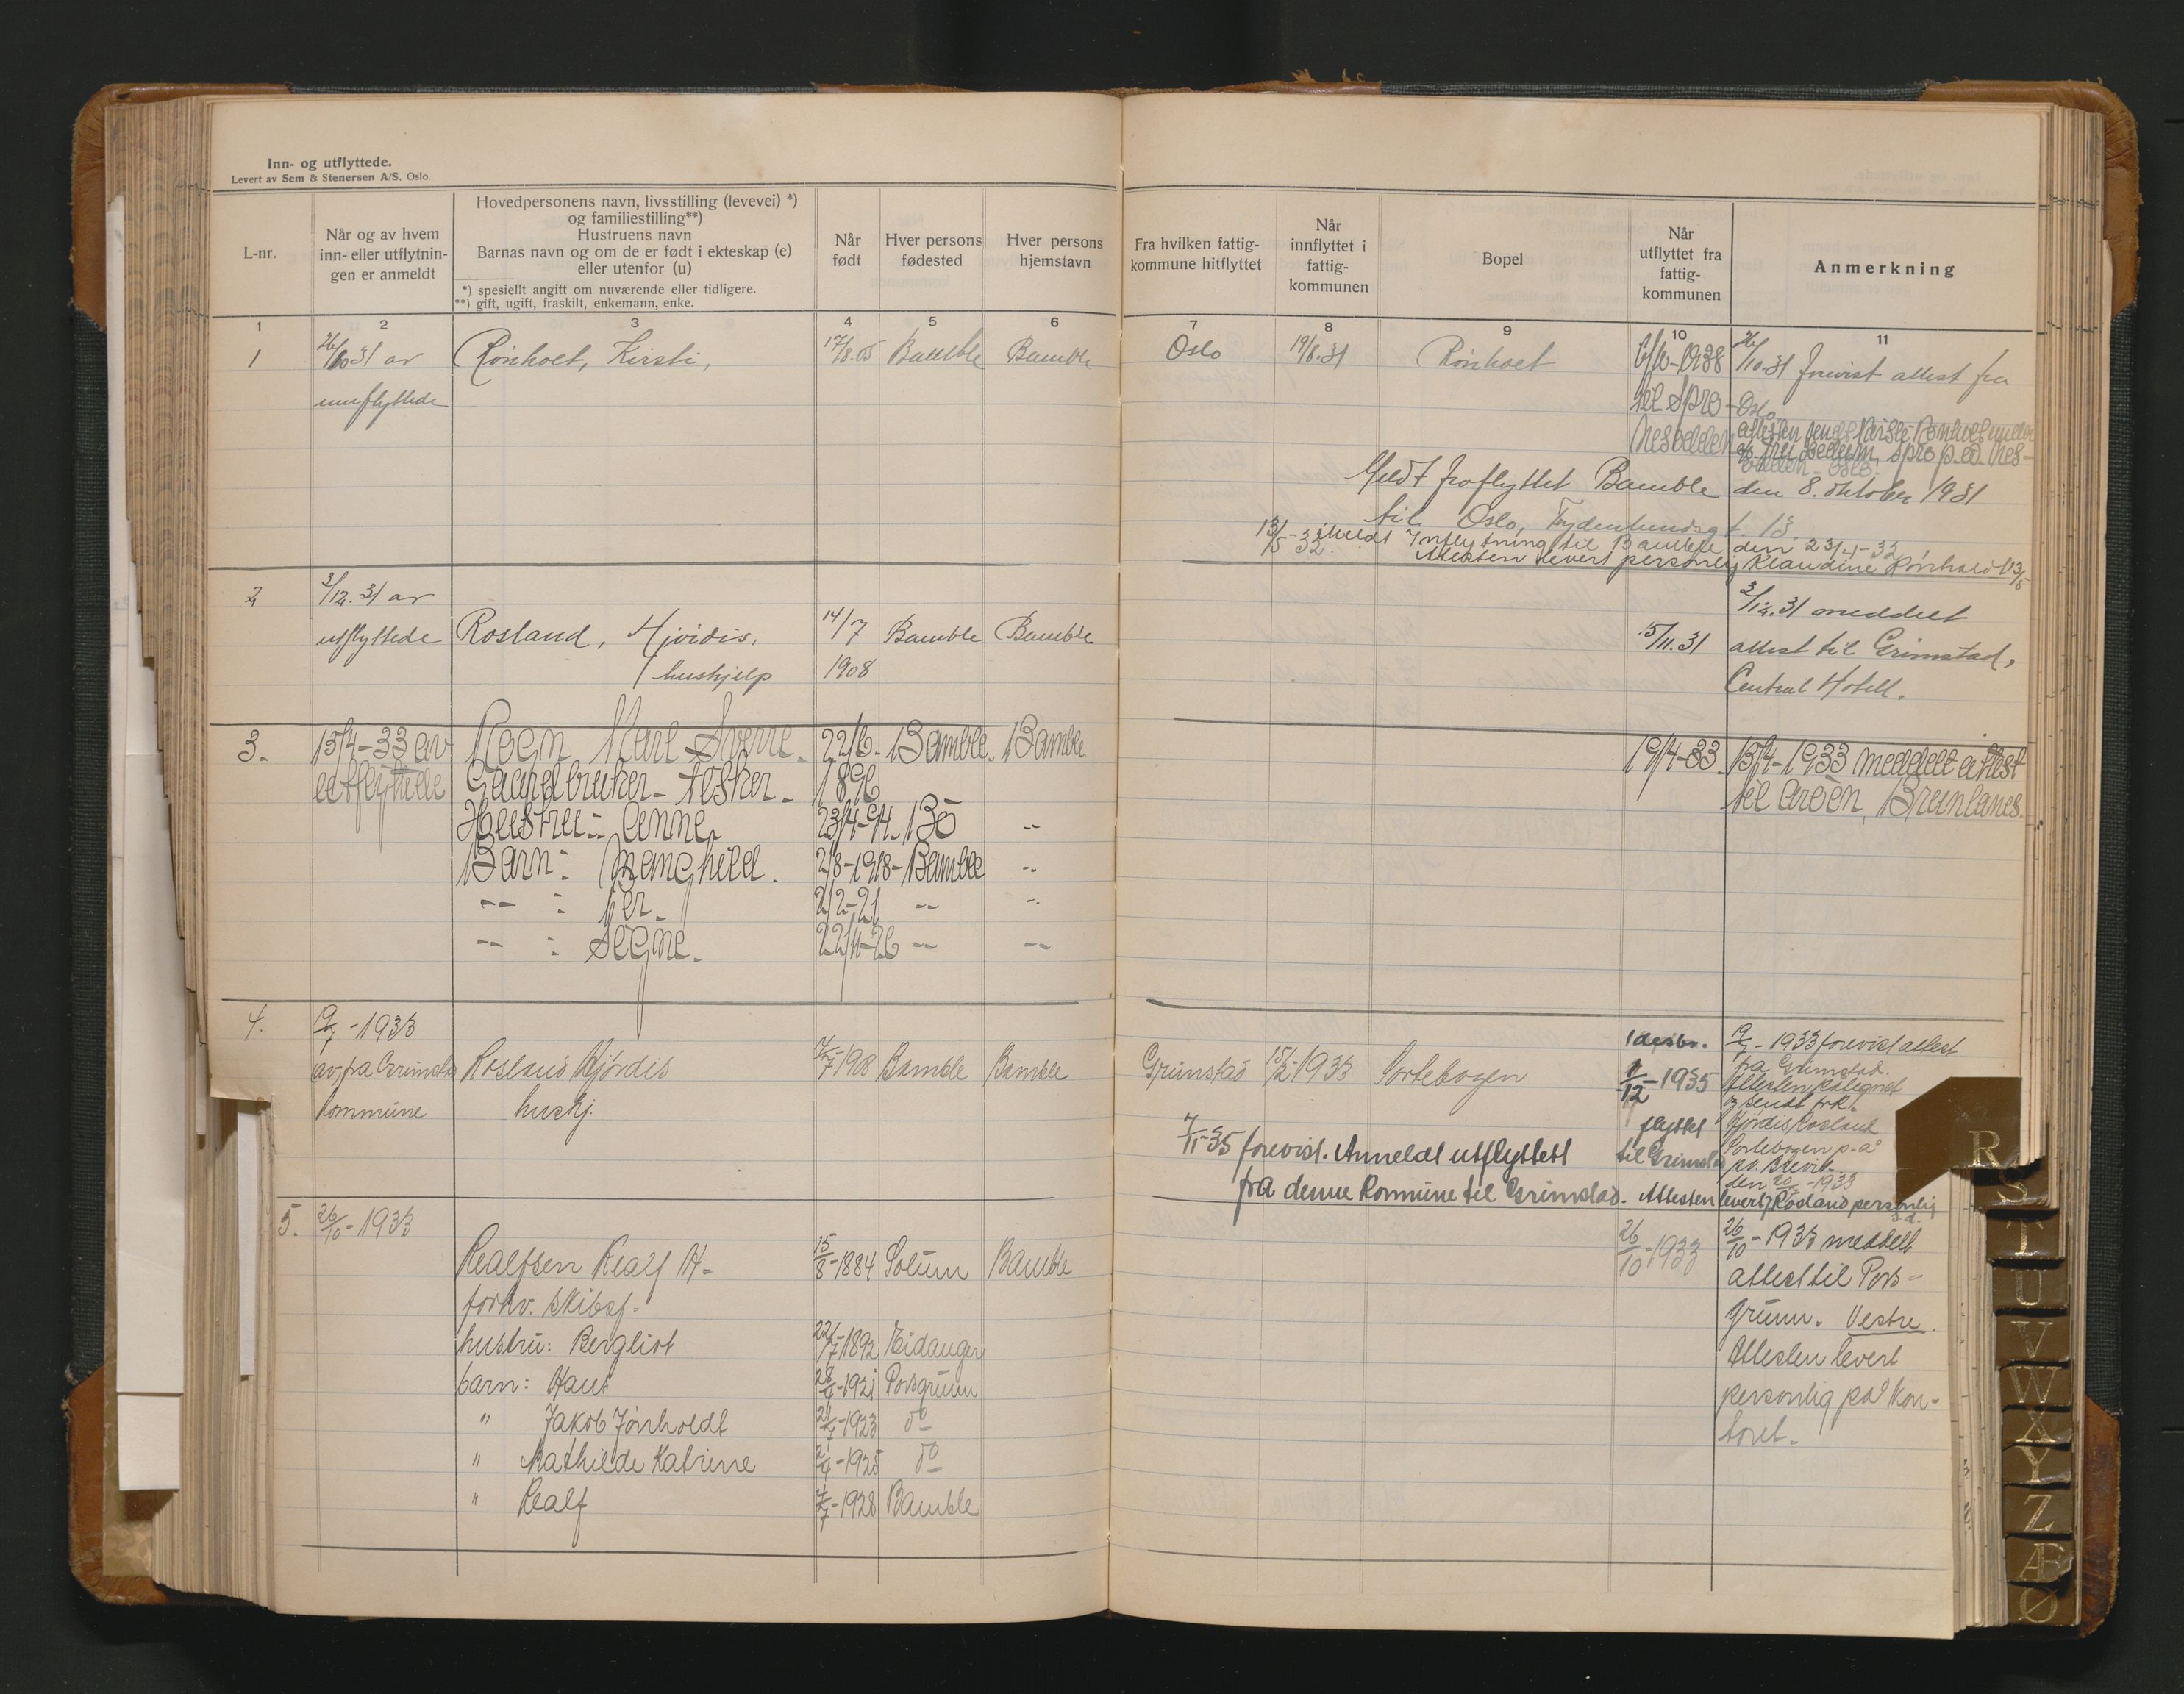 Inn- og utflyttede.
Levert av Sem & Stenersen A/S, Oslo.
L-nr.
Når og av hvem
inn- eller utflytnin-
gen er anmeldt
Hovedpersonens navn, livsstilling (levevei) *)
og familiestilling**)
Hustruens navn
Barnas navn og om de er født i ekteskap (e)
eller utenfor (u)
*) spesiellt angitt om nuværende eller tidligere.
**) gift, ugift, fraskilt, enkemann, enke.
Når
født
Hver persons
fødested
Hver persons
hjemstavn
Fra hvilken fattig-
kommune hitflyttet
Når
innflyttet i
fattig-
kommunen
Bopel
Når
utflyttet fra
fattig-
kommunen
Anmerkning
1 2 3 4 5 6 7 8 9 10 11
1 26/10 31 av Rønholt, Kirsti, 17/8.05 Bamble Bamble Oslo 19/8.31 Rønholt 6/10-1938 26/10.31 forevist attest fra
innflyttede til Spro- Oslo
Nesodden Attesten sendt
Spro p.å. Nes-
odden - Oslo.
Meldt fraflyttet Bamble den 8. oktober 1931
til Oslo,
13/5-32 Meldt Innflytning til Bamble den 23/4-32
Attesten levert personlig Klaudine Rønholt 13/5
2 3/12.31 av
utflyttede Rosland, Hjørdis, 14/7 Bamble Bamble 15/11.31 3/12.31 meddelt
hushjelp 1908 attest til Grimstad,
Central Hotell.
3. 15/4-33 av Roen Karl Sverre. 22/6- Bamble. Bamble 19/4-33. 15/4-1933 meddelt attest
utflyttede Gaardbruker- fisker- 1896 til Brunlanes.
Hustru:- Anna. 23/4-94. Bø --
Barn: Ragnhild. 2/8-1918- Bamble --
-- : Per. 2/2-21 -- --
-- : Signe. 22/11-26 -- --
4. -1933
av, fra Grimstad Rosland Hjørdis 1908 Bamble Bamble Grimstad 15/2-1933 Sortebogen 1 desbr. 1933 forevist attest
kommune hushj. 1/12-1935 fra Grimstad.
Attesten påtegnet
og sendt frk.
flyttet Hjørdis Rosland
til Grimstad Sortebogen p.å
pr. Brevik.
den 20 -1933
7/11-35 forevist. Anmeldt utflyttett
fra denne Kommune til Grimstad. Attesten levert Rosland personlig
s.d.
5. 26/10-1933 26/10-1933 26/10-1933 meddelt
Realfsen Realf H- 15/8-1884 Solum Bamble attest til Pors-
forhv. skibsf- grunn. Vestre.
hustru: Bergliot 22/7-1892 Eidanger Attesten levert
barn: Hans 28/4-1921 Porsgrunn personlig på kon-
" Jakob 1923 do toret-
" Mathilde Katrine 1925 do
" Realf 1928 Bamble
R
S
T
U
V
W
X
Y
Z
Æ
Ø